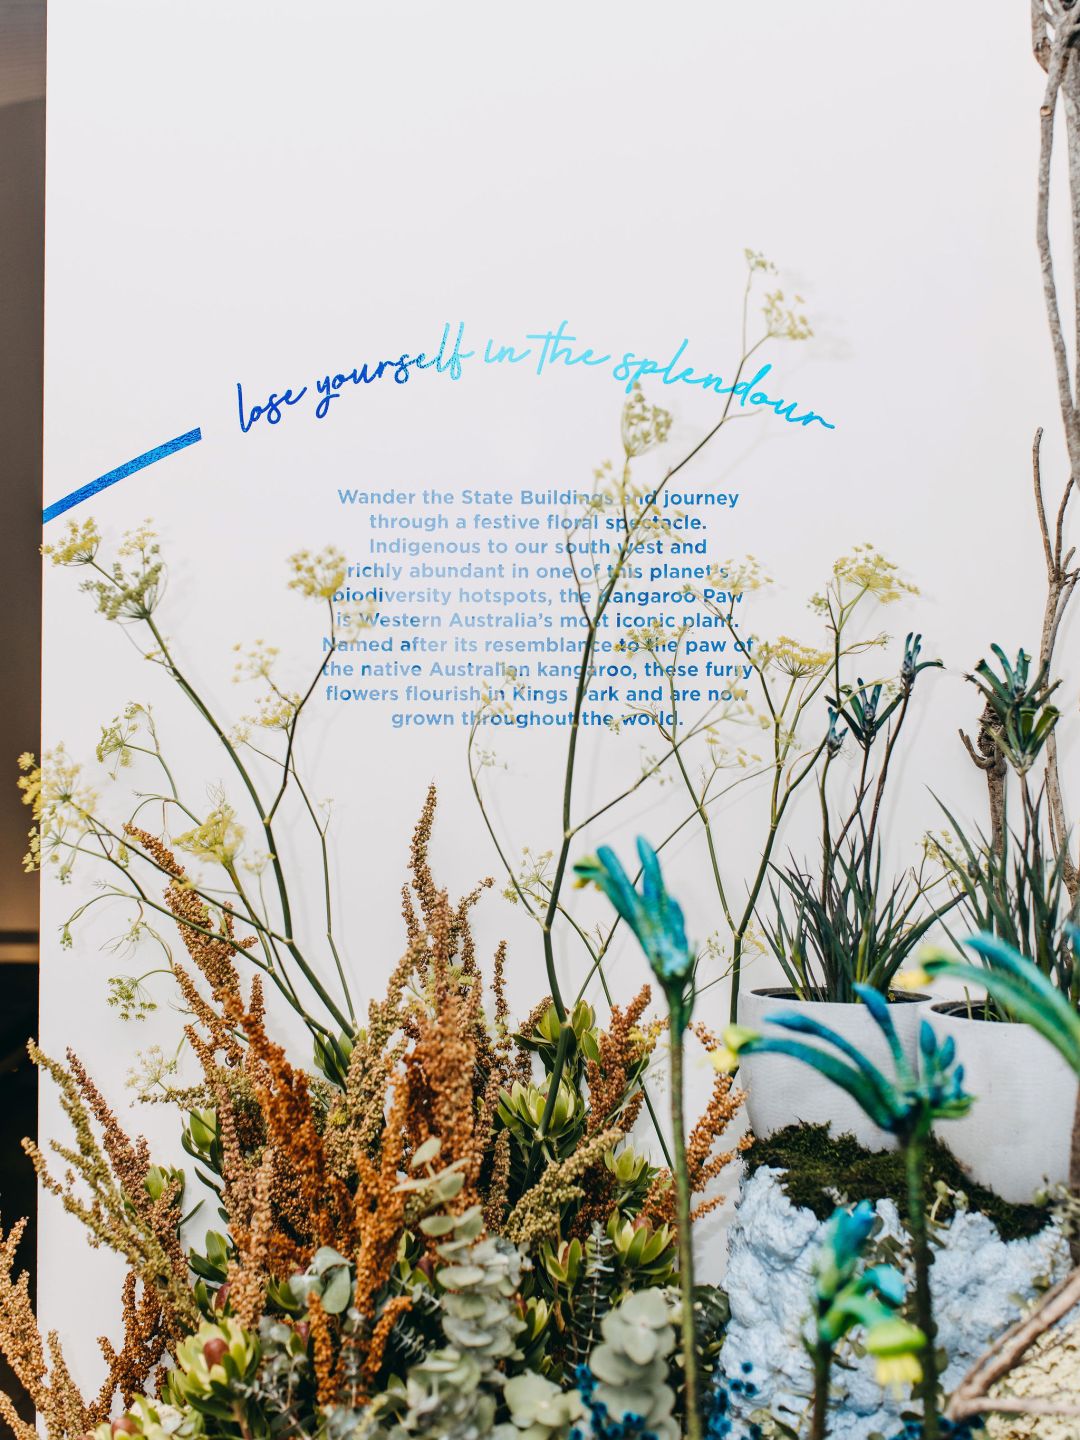 lose yourself in the splendour
Wander the State Buildings and journey
through a festive floral spectacle.
Indigenous to our south west and
richly abundant in one of this planet's
biodiversity hotspots, the Kangaroo Paw
is Western Australia's most iconic plant.
Named after its resemblance to the paw of
the native Australian kangaroo, these furry
flowers flourish in Kings Park and are now
grown throughout the world.